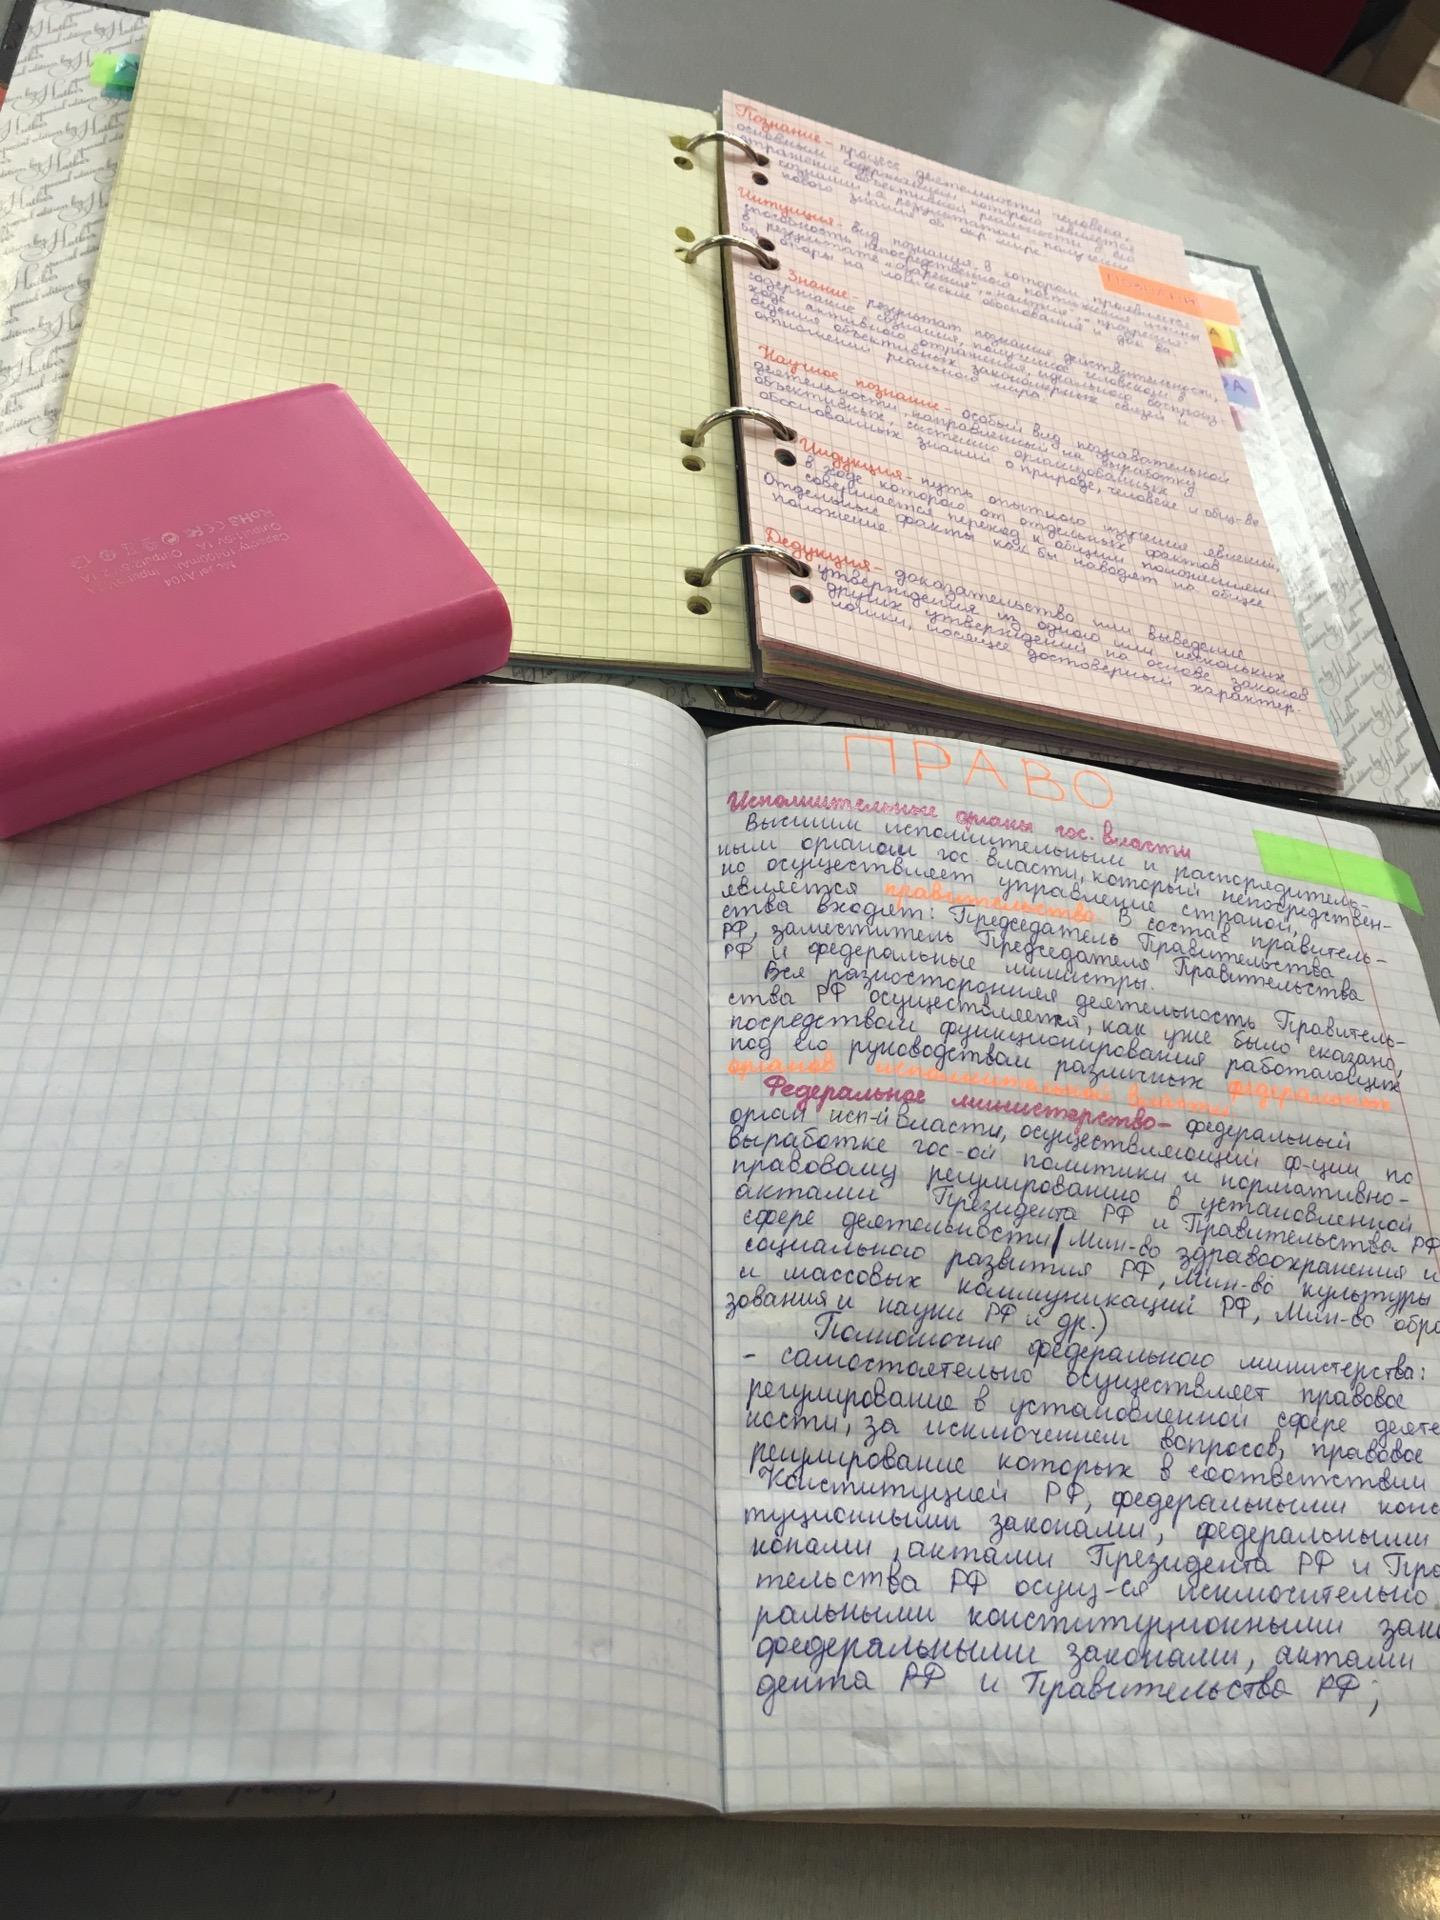 Познание - процесс деятельности человека,
основным содержанием которой является
отражение объективной реальности в его
сознании, а результатом - получение
нового знания об окр. мире
Интуиция - вид познания, в котором проявляется
способность непосредственного постижения истины
в результате "озарения", "наития", "прозрения"
без опоры на логические обоснования и док-ва.
Знание - результат познания действительности,
содержание сознания, полученное человеком в
ходе активного отражения, идеального воспроиз-
ведения объективных закономерных связей и
отношений реального мира.
Научное познание - особый вид познавательной
деятельности, направленный на выработку
объективных, системно организованных и
обоснованных знаний о природе, человеке и общ-ве
Индукция - путь опытного изучения явлений,
в ходе которого от отдельных фактов
совершается переход к общим положениям.
Отдельные факты как бы наводят на общее
положение
Дедукция - доказательство или выведение
утверждения из одного или нескольких
других утверждений на основе законов
логики, носящее достоверный характер.
ПОЗНАНИЕ
RoHS CE
Output1:5V 1A
Capacity 10400mAh
A104
ПРАВО
Исполнительные органы гос. власти
Высшим исполнительным и распорядитель-
ным органом гос. власти, который непосредствен-
но осуществляет управление страной,
является правительство. В состав правитель-
ства входят: Председатель Правительства
РФ, заместитель Председателя Правительства
РФ и федеральные министры.
Вся разносторонняя деятельность Правитель-
ства РФ осуществляется, как уже было сказано,
посредством функционирования работающих
под его руководством различных федеральных
органов исполнительной власти
Федеральное министерство - федеральный
орган исп-й власти, осуществляющий ф-ции по
выработке гос-ой политики и нормативно-
правовому регулированию в установленной
актами Президента РФ и Правительства РФ
сфере деятельности/ Мин-во здравоохранения и
социального развития РФ, Мин-во культуры
и массовых коммуникаций РФ, Мин-во обра
зования и науки РФ и др.)
Полномочия федерального министерства:
- самостоятельно осуществляет правовое
регулирование в установленной сфере деяте
ности, за исключением вопросов, правовое
регулирование которых в соответствии
Конституцией РФ, федеральными конс
туционными законами, федеральными
конами, актами Президента РФ и Пра
тельства РФ осущ-ся исключительно
ральными конституционными зак
федеральными законами, актами
дента РФ и Правительства РФ;